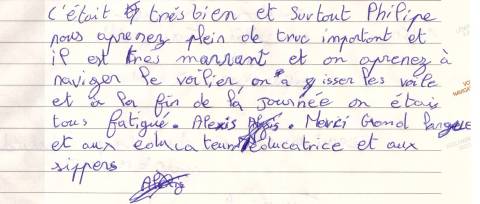 C'était trés bien et surtout Philipe
nous aprenez plein de truc important et
il est tres marrant et on aprenez à
naviger le voilier on a isser les voile
et a la fin de la journée on étais
tous fatigué. Alexis Alexis. Merci Grand largue
et aux educateur educatrice et aux
sippers
Alexis